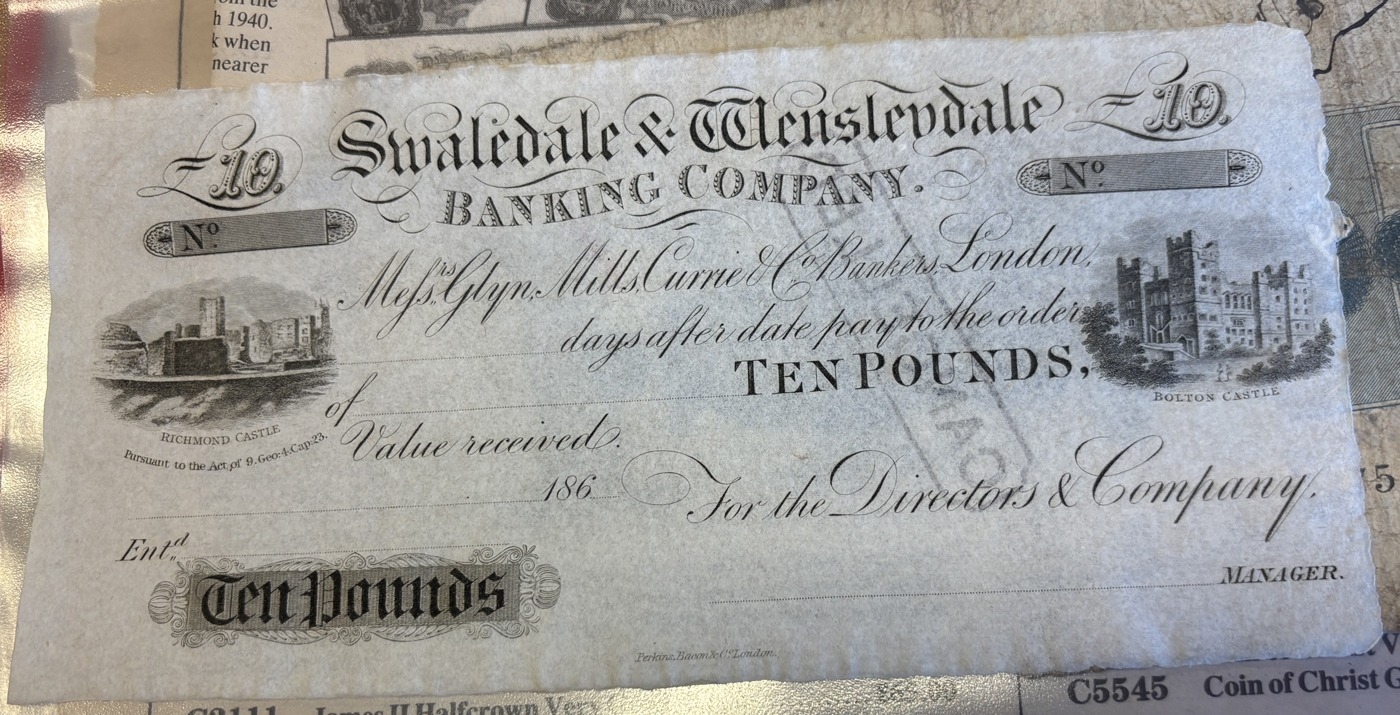 om the
h 1940.
k when
nearer
£10. Swaledale & Wensleydale £10.
BANKING COMPANY.
No. No.
Messrs. Glyn, Mills, Currie & Co. Bankers, London,
days after date pay to the order
of TEN POUNDS,
Value received.
RICHMOND CASTLE
Pursuant to the Act of 9. Geo: 4. Cap: 23.
BOLTON CASTLE
186
For the Directors & Company.
Entd.
Ten Pounds
MANAGER.
Perkins, Bacon & Co. London.
C5545 Coin of Christ
C3111 James II Halfcrown Very